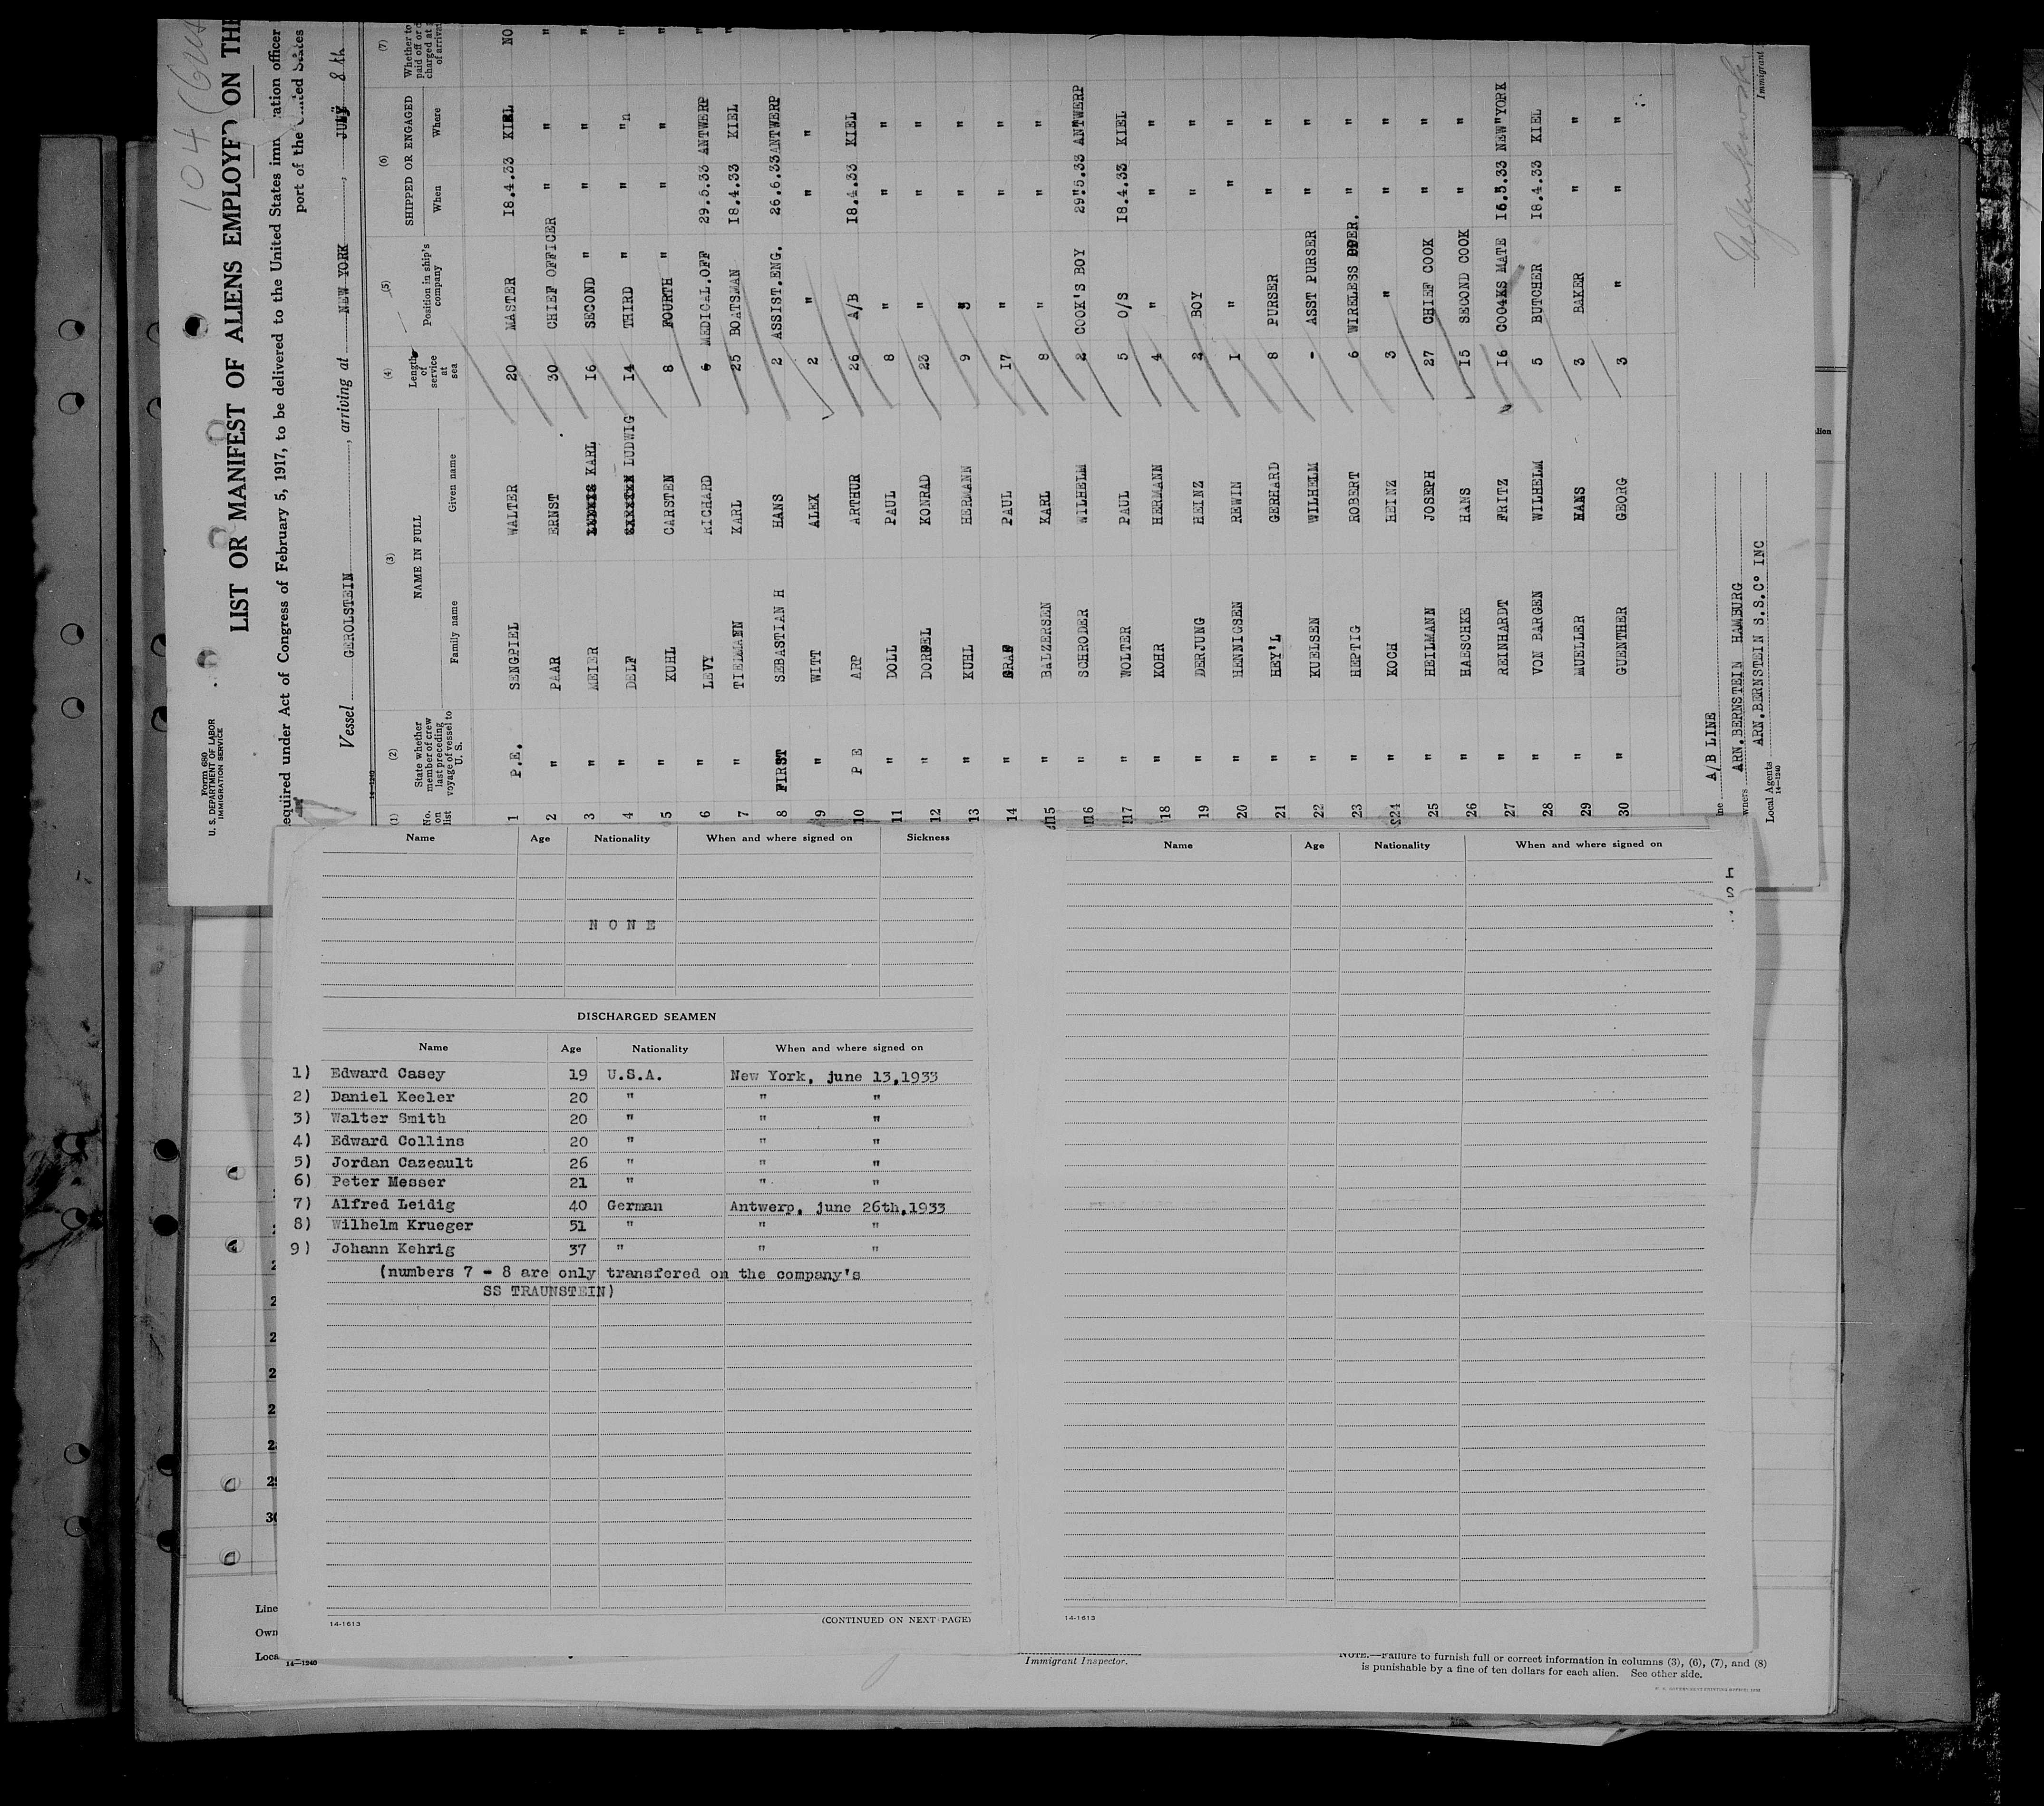 104
Form 680
U. S. DEPARTMENT OF LABOR
IMMIGRATION SERVICE
LIST OR MANIFEST OF ALIENS EMPLOYED ON THE
equired under Act of Congress of February 5, 1917, to be delivered to the United States immigration officer
port of the United States
Vessel GEROLSTEIN, arriving at NEW YORK, JULY 8 th
14-1240
(1) (2) (3) (4) (5) (6) (7)
No. on list State whether member of crew last preceding voyage of vessel to U. S. NAME IN FULL Length of service at sea Position in ship's company SHIPPED OR ENGAGED Whether to paid off or charged at of arrival
Family name Given name When Where
1 P.E. SENGPIEL WALTER 20 MASTER 18.4.33 KIEL NO
2 " PAAR ERNST 30 CHIEF OFFICER " " "
3 " MEIER KARL 16 SECOND " " " "
4 " DELF LUDWIG 14 THIRD " " "n "
5 " KUHL CARSTEN 8 FOURTH " " " "
6 " LEVY RICHARD 6 MEDICAL.OFF 29.5.33 ANTWERP "
7 " TIEDMANN KARL 25 BOATSMAN 18.4.33 KIEL "
8 FIRST SEBASTIAN H HANS 2 ASSIST.ENG. 26.6.33 ANTWERP
9 " WITT ALEX 2 " " "
10 P E ARP ARTHUR 26 A/B 18.4.33 KIEL
11 " DOLL PAUL 8 " " "
12 " KONRAD 23 " " "
13 " KUHL HERMANN 9 " " "
14 " GRAF PAUL 17 " " "
15 " BALZERSEN KARL 8 " " "
16 " SCHRODER WILHELM 2 COOK'S BOY 29.5.33 ANTWERP
17 " WOLTER PAUL 5 O/S 18.4.33 KIEL
18 " KOHR HERMANN 4 " " "
19 " DERJUNG HEINZ 2 BOY " "
20 " HENNIGSEN REWIN 1 " " "
21 " HEY'L GERHARD 8 PURSER " "
22 " KUELSEN WILHELM - ASST PURSER " "
23 " HEPTIG ROBERT 6 WIRELESS OPER. " "
24 " KOCH HEINZ 3 " " "
25 " HEILMANN JOSEPH 27 CHIEF COOK " "
26 " HAESCHKE HANS 15 SECOND COOK " "
27 " REINHARDT FRITZ 16 COOKS MATE 16.5.33 NEW YORK
28 " VON BARGEN WILHELM 5 BUTCHER 18.4.33 KIEL
29 " MUELLER HANS 3 BAKER " "
30 " GUENTHER GEORG 3 " " "
ine A/B LINE
wners ARN.BERNSTEIN HAMBURG
Local Agents ARN.BERNSTEIN S.S.Co INC
14-1240
Immigrant
Name Age Nationality When and where signed on Sickness
NONE
DISCHARGED SEAMEN
Name Age Nationality When and where signed on
1) Edward Casey 19 U.S.A. New York, june 13,1933
2) Daniel Keeler 20 " " "
3) Walter Smith 20 " " "
4) Edward Collins 20 " " "
5) Jordan Cazeault 26 " " "
6) Peter Messer 21 " " "
7) Alfred Leidig 40 German Antwerp, june 26th,1933
8) Wilhelm Krueger 51 " " "
9) Johann Kehrig 37 " " "
(numbers 7 - 8 are only transfered on the company's
SS TRAUNSTEIN)
14-1613 (CONTINUED ON NEXT PAGE)
Name Age Nationality When and where signed on
14-1613
lien
30
Line
Own
Loca
14-1240
Immigrant Inspector.
NOTE.—Failure to furnish full or correct information in columns (3), (6), (7), and (8)
is punishable by a fine of ten dollars for each alien. See other side.